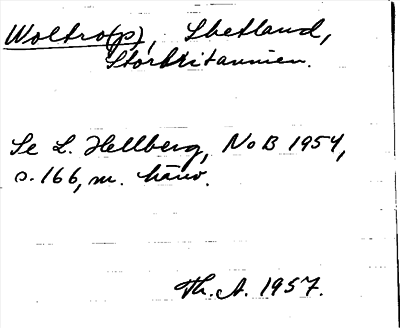 Woltro(p), Shetland,
Storbritannien.
Se L. Hellberg, NoB 1954,
s. 166, m. hänv.
Th. A. 1957.